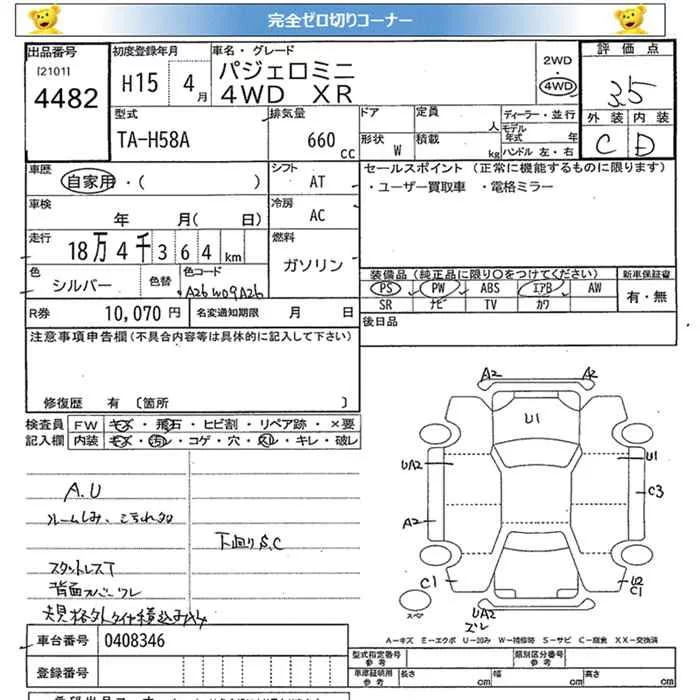 完全ゼロ切りコーナー
出品番号 初度登録年月 車名・グレード 評価点
[2101] 4482 H15 4月 パジェロミニ 2WD
4WD XR 4WD 3.5
型式 排気量 ドア 定員 人 ディーラー・並行 外装 内装
TA-H58A 660cc 形状 W 積載 kg モデル年式 年 C D
ハンドル 左・右
車歴 シフト セールスポイント (正常に機能するものに限ります)
自家用・( ) AT ・ユーザー買取車 ・電格ミラー
車検 冷房
年 月( 日) AC
走行 燃料
18万4千364km ガソリン
色 色替 色コード 装備品(純正品に限り○をつけてください) 新車保証書
シルバー A26W09A26 PS PW ABS エアB AW 有・無
SR ナビ TV カワ
R券 10,070円 名変通知期限 月 日 後日品
注意事項申告欄(不具合内容等は具体的に記入して下さい)
修復歴 有 〔箇所
検査員 FW キズ・飛石・ヒビ割・リペア跡・×要
記入欄 内装 キズ・汚レ・コゲ・穴・スレ・キレ・破レ
A.U
ルームしみ、こげ
下廻りS,C
スタットレスT
背面スペアカバーワレ
規格外タイヤ積込み
A2 A2
U1
UA2 U1
A2 C3
C1 U2
C1
スペア UA2
ズレ
A-キズ E-エクボ U-凹み W-補修跡 S-サビ C-腐食 XX-交換済
車台番号 0408346
登録番号
型式指定番号 参考 類別区分番号 参考
車庫証明用 参考 長さ cm 幅 cm 高さ cm